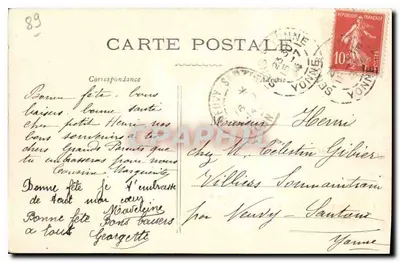 89
CARTE POSTALE
Correspondance
Bonne fête. Bons
baisers. bonne santé
cher petit Henri nos
bons souhaits à tes
chers Grands Parents que
tu embrasseras pour nous
Cousine Marguerite
Bonne fête je t'embrasse
de tout mon cœur
Madeleine
Bonne fête Bons baisers
à tous Georgette
REPUBLIQUE FRANÇAISE
10
Monsieur Henri
chez M. Célestin Gibier
Villiers Sommanitrain
par Neuvy-Sautour
Yonne